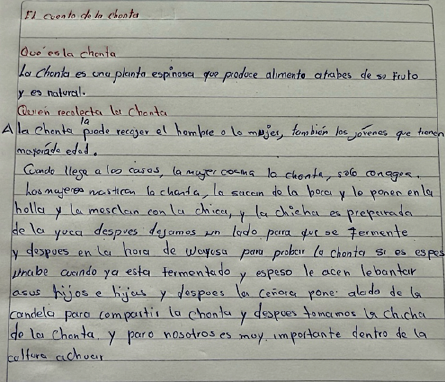 El cuento de la chonta
Que es la chonta
La Chonta es una planta espinosa que produce alimento atrabes de su Fruto
y es natural.
Quien recolecta la Chonta
A la chonta la puede recojer el hombre o la mujer, tambien los jovenes que tienen
mayoria de edad.
Cuando llega a las casas, la mujer cocina la chonta, solo con agua.
Las mujeres mastican la chonta, la sacan de la boca y la ponen en la
holla y la mesclan con la chica, y la chicha es preparada
de la yuca despues dejamos un lado para que se fermente
y despues en la hora de wayusa para probar la chonta si es espes
cuando ya esta fermentado y espeso le acen lebantar
asus hijos e hijas y despues la señora pone alado de la
candela para compartir la chonta y despues tomamos la chicha
de la Chonta, y para nosotros es muy importante dentro de la
cultura achuar